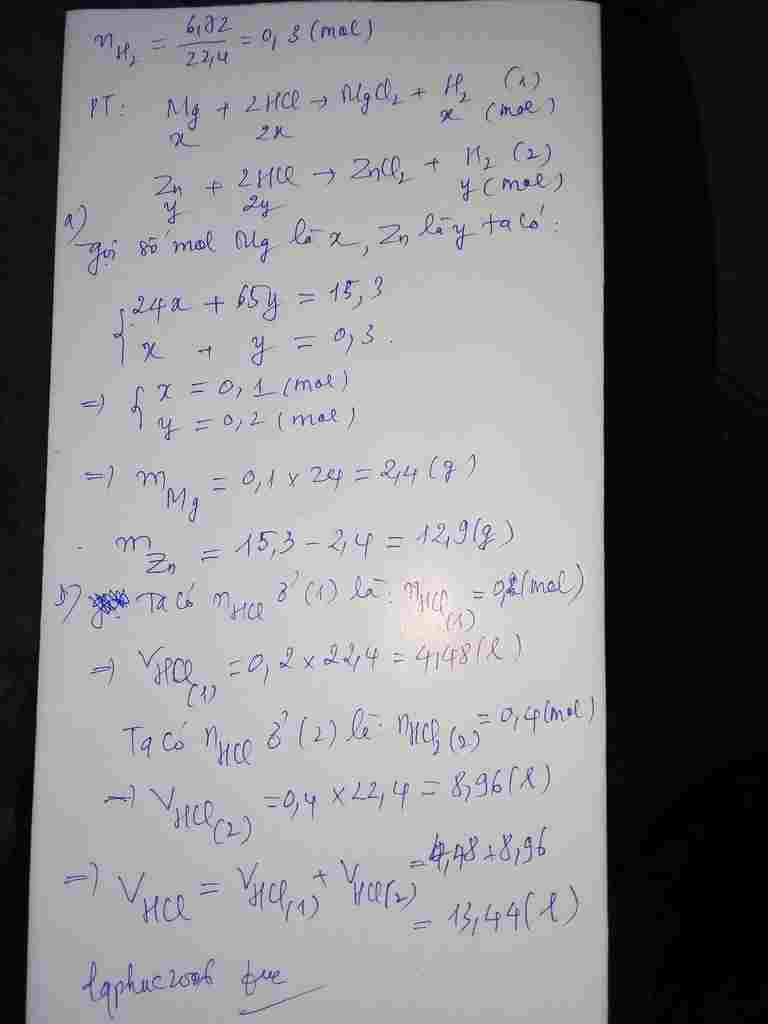 n H₂ = 6,72/22,4 = 0,3 (mol)
PT: Mg + 2HCl → MgCl₂ + H₂ (1)
x 2x x (mol)
Zn + 2HCl → ZnCl₂ + H₂ (2)
y 2y y (mol)
a)
gọi số mol Mg là x, Zn là y ta có:
24x + 65y = 15,3
x + y = 0,3.
=) x = 0,1 (mol)
y = 0,2 (mol)
=) m Mg = 0,1 × 24 = 2,4 (g)
m Zn = 15,3 - 2,4 = 12,9 (g)
b) Ta có n HCl ở (1) là: n HCl (1) = 0,2 (mol)
=) V HCl (1) = 0,2 × 22,4 = 4,48 (l)
Ta có n HCl ở (2) là: n HCl (2) = 0,4 (mol)
=) V HCl (2) = 0,4 × 22,4 = 8,96 (l)
=) V HCl = V HCl (1) + V HCl (2) = 4,48 + 8,96
= 13,44 (l)